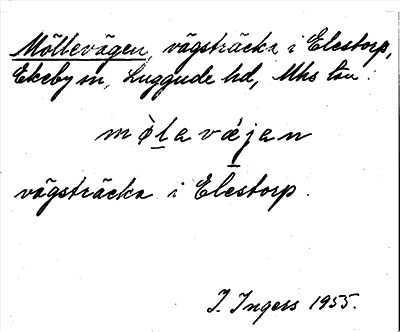 Möllevägen, vägsträcka i Elestorp,
Ekeby sn, Luggude hd, Mhs län.
mò̱lavǽ̱jan
vägsträcka i Elestorp.
I. Ingers 1955.